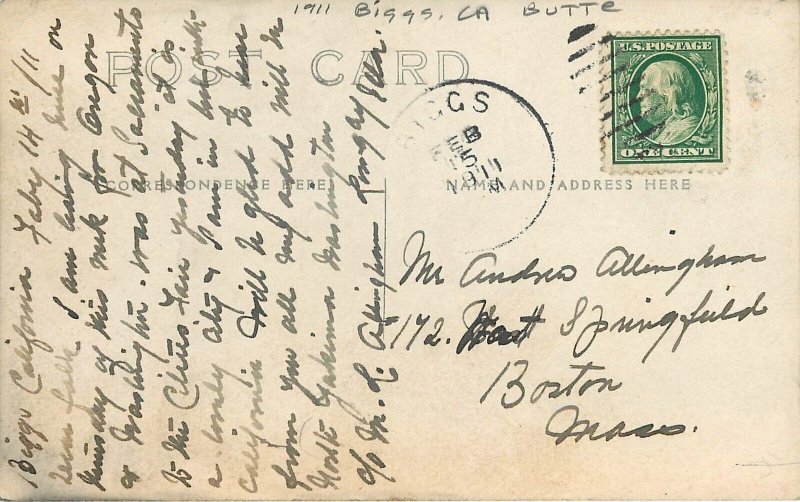 1911 Biggs, CA Butte
POST CARD
U.S. POSTAGE
ONE CENT
BIGGS
FEB
15
1911
M
CORRESPONDENCE HERE
NAME AND ADDRESS HERE
Mr Andrew Allingham
172. West Springfield
Boston
Mass.
Biggs California Feby 14th/11
Dear folk I am leaving here on
thursday of this week for
or Washington. was at Sacramento
to the Citrus Fair yesterday it is
a lovely city & I am in love with
California Will be glad to hear
from you all my add will be
North Yakima Washington
c/o M. L. Allingham